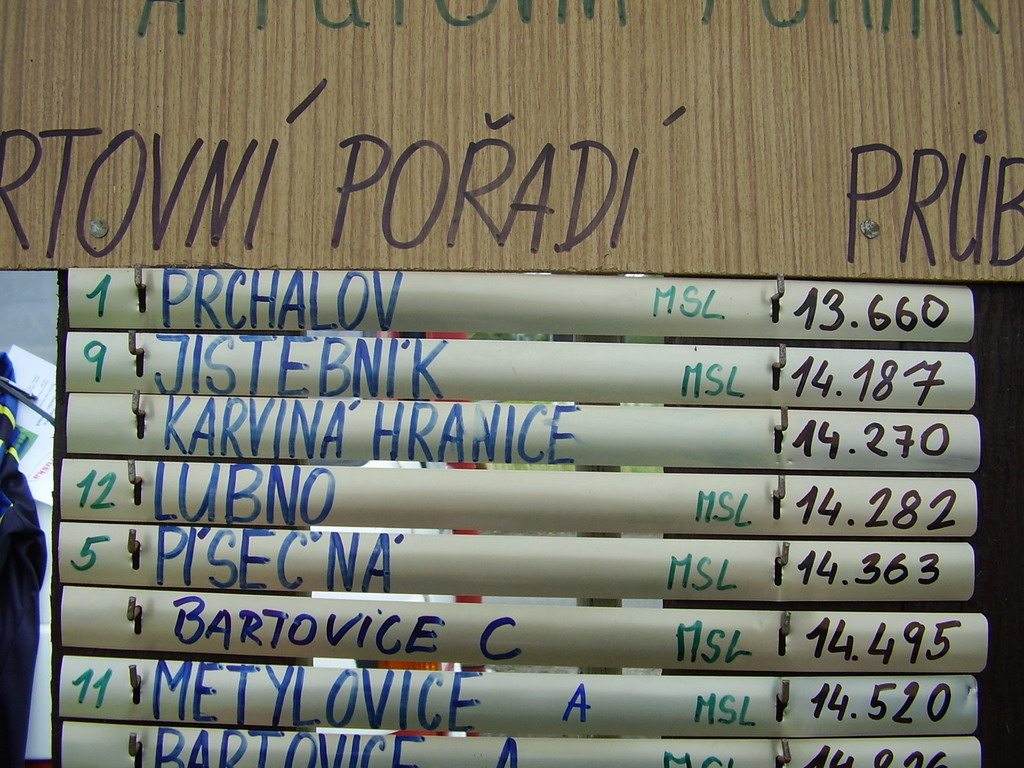 A PUTOVNÍ POHÁR
RTOVNÍ POŘADÍ PRŮB
1 PRCHALOV MSL 13.660
9 JISTEBNÍK MSL 14.187
KARVINÁ HRANICE 14.270
12 LUBNO MSL 14.282
5 PÍSEČNÁ MSL 14.363
BARTOVICE C MSL 14.495
11 METYLOVICE A MSL 14.520
BARTOVICE A MSL 14.826